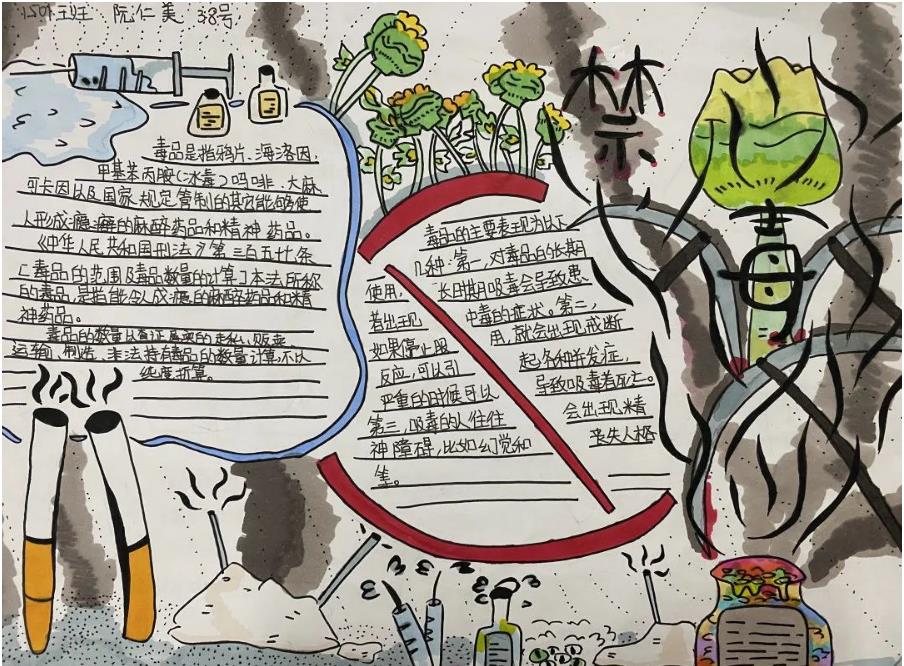 阮仁美 38号
毒品是指鸦片、海洛因,
甲基苯丙胺(冰毒)吗啡、大麻,
可卡因以及国家规定管制的其它能够使
人形成瘾癖的麻醉药品和精神药品。
《中华人民共和国刑法》第三百五十七条
[毒品的范围及毒品数量的计算]本法所称
的毒品,是指能令人成瘾的麻醉药品和精
神药品。
毒品的数量以查证属实的走私、贩卖、
运输、制造、非法持有毒品的数量计算,不以
纯度折算。
毒品的主要表现为以下
几种:第一,对毒品的长期
使用,长时期吸毒会导致患
者出现中毒的症状。第二,
如果停止服用,就会出现戒断
反应,可以引起各种并发症,
严重的时候可以导致吸毒者死亡。
第三,吸毒的人往往会出现精
神障碍,比如幻觉和丧失人格
等。
禁
毒